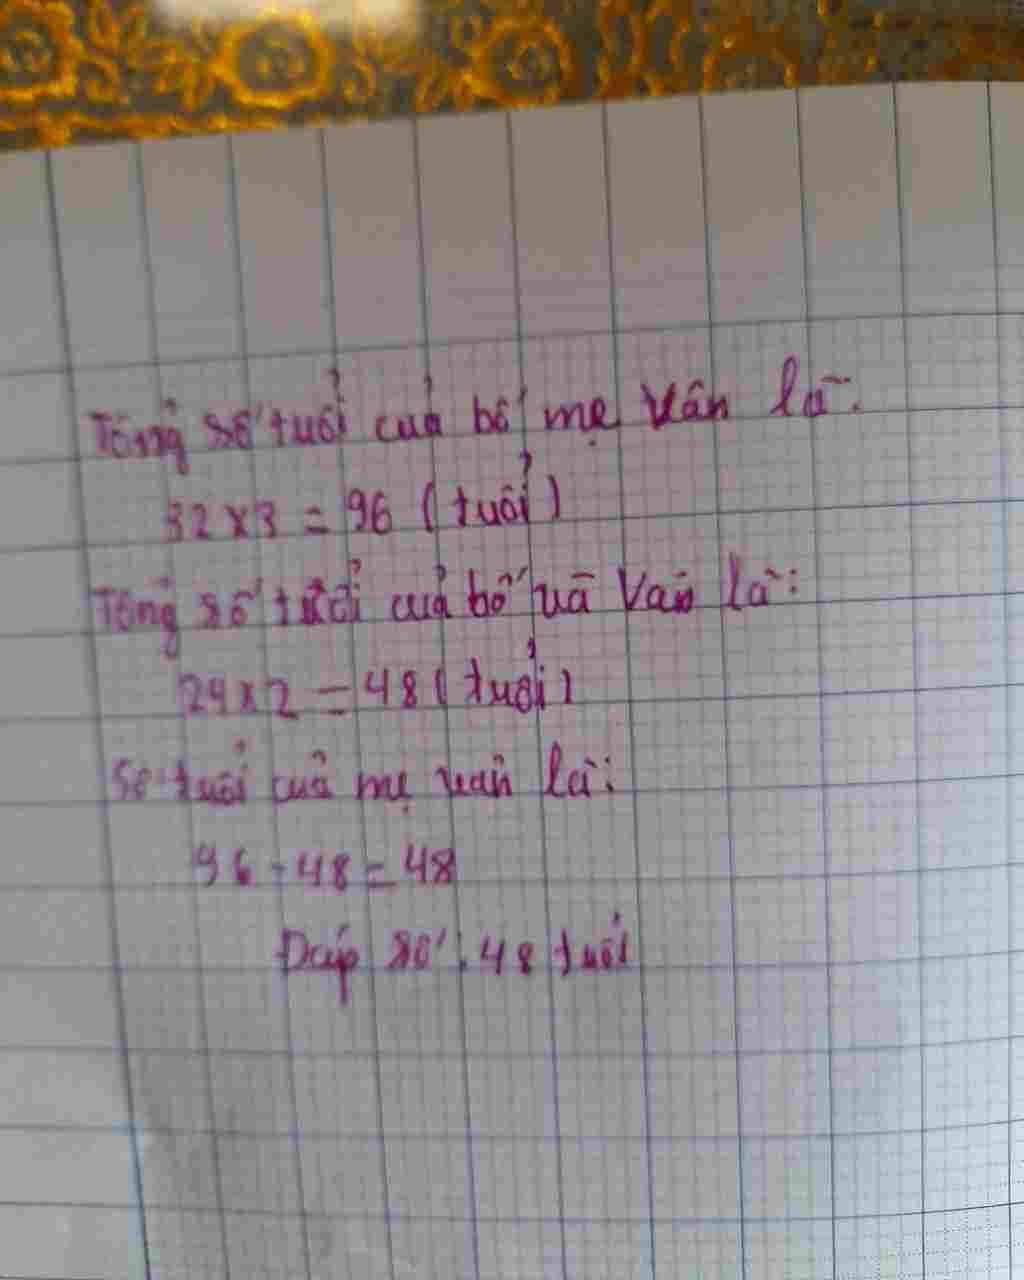 Tổng số tuổi của bố mẹ Vân là:
32 x 3 = 96 (tuổi)
Tổng số tuổi của bố và Vân là:
24 x 2 = 48 (tuổi)
Số tuổi của mẹ Vân là:
96 - 48 = 48
Đáp số: 48 tuổi